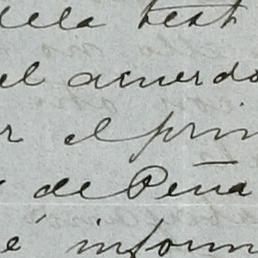 dela test
el acuerdo
r el prin
de Peña
é inform